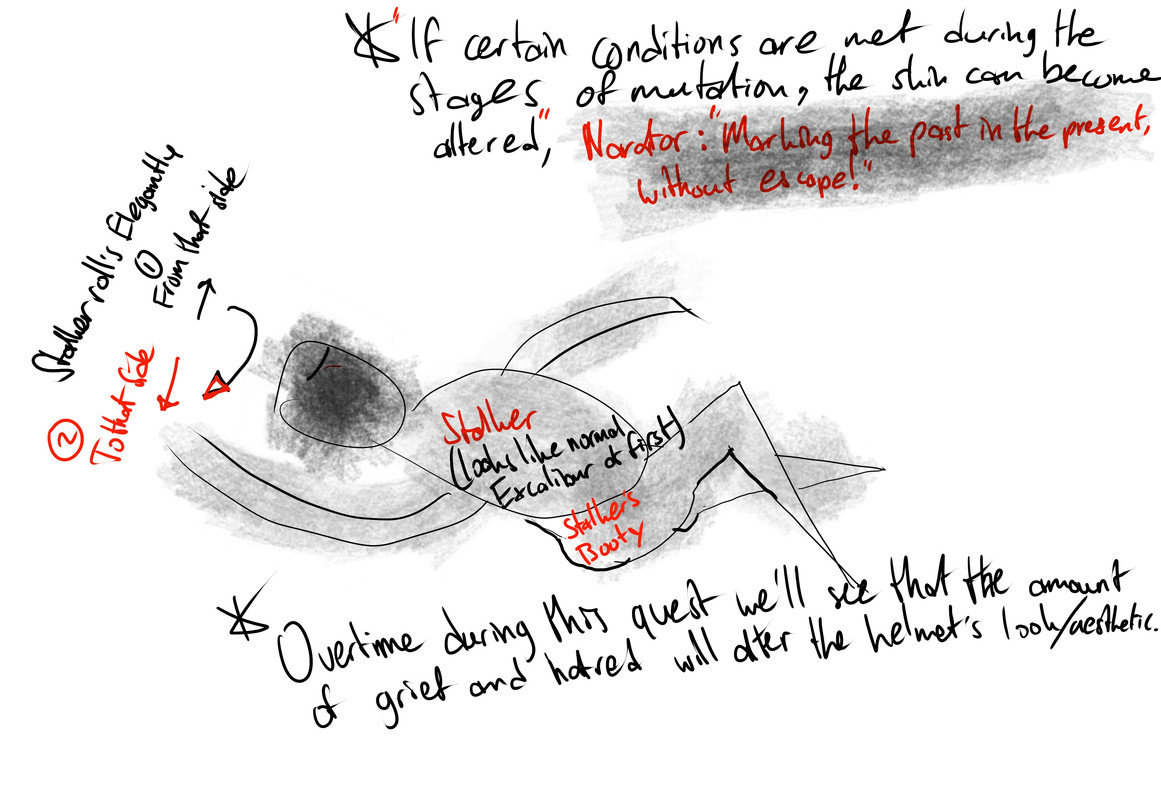 * "If certain conditions are met during the
stages of mutation, the skin can become
altered," Narator: "Marking the past in the present,
without escape!"
Stalker roll's Elegantly
① From that side
② To that side
Stalker
(looks like normal
Excalibur at first)
Stalker's
Booty
* Overtime during this quest we'll see that the amount
of grief and hatred will alter the helmet's look/aesthetic.